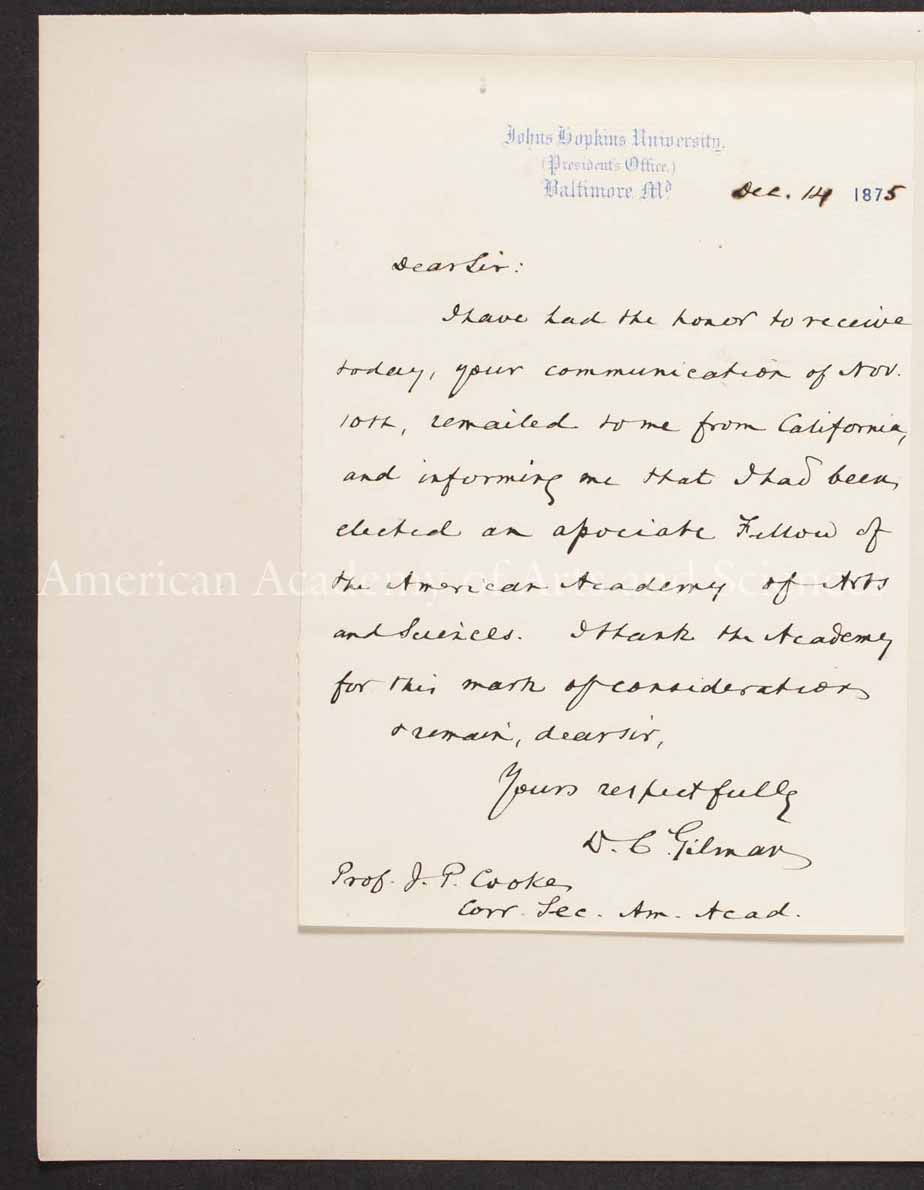 Johns Hopkins University,
(President's Office.)
Baltimore, Md.
Dec. 14 1875
Dear Sir:
I have had the honor to receive
today, your communication of Nov.
10th, remailed to me from California,
and informing me that I had been
elected an associate Fellow of
the American Academy of Arts
and Sciences. I thank the Academy
for this mark of consideration
& remain, dear sir,
Yours respectfully
D. C. Gilman
Prof. J. P. Cooke
Corr. Sec. Am. Acad.
American Academy of Arts and Sciences